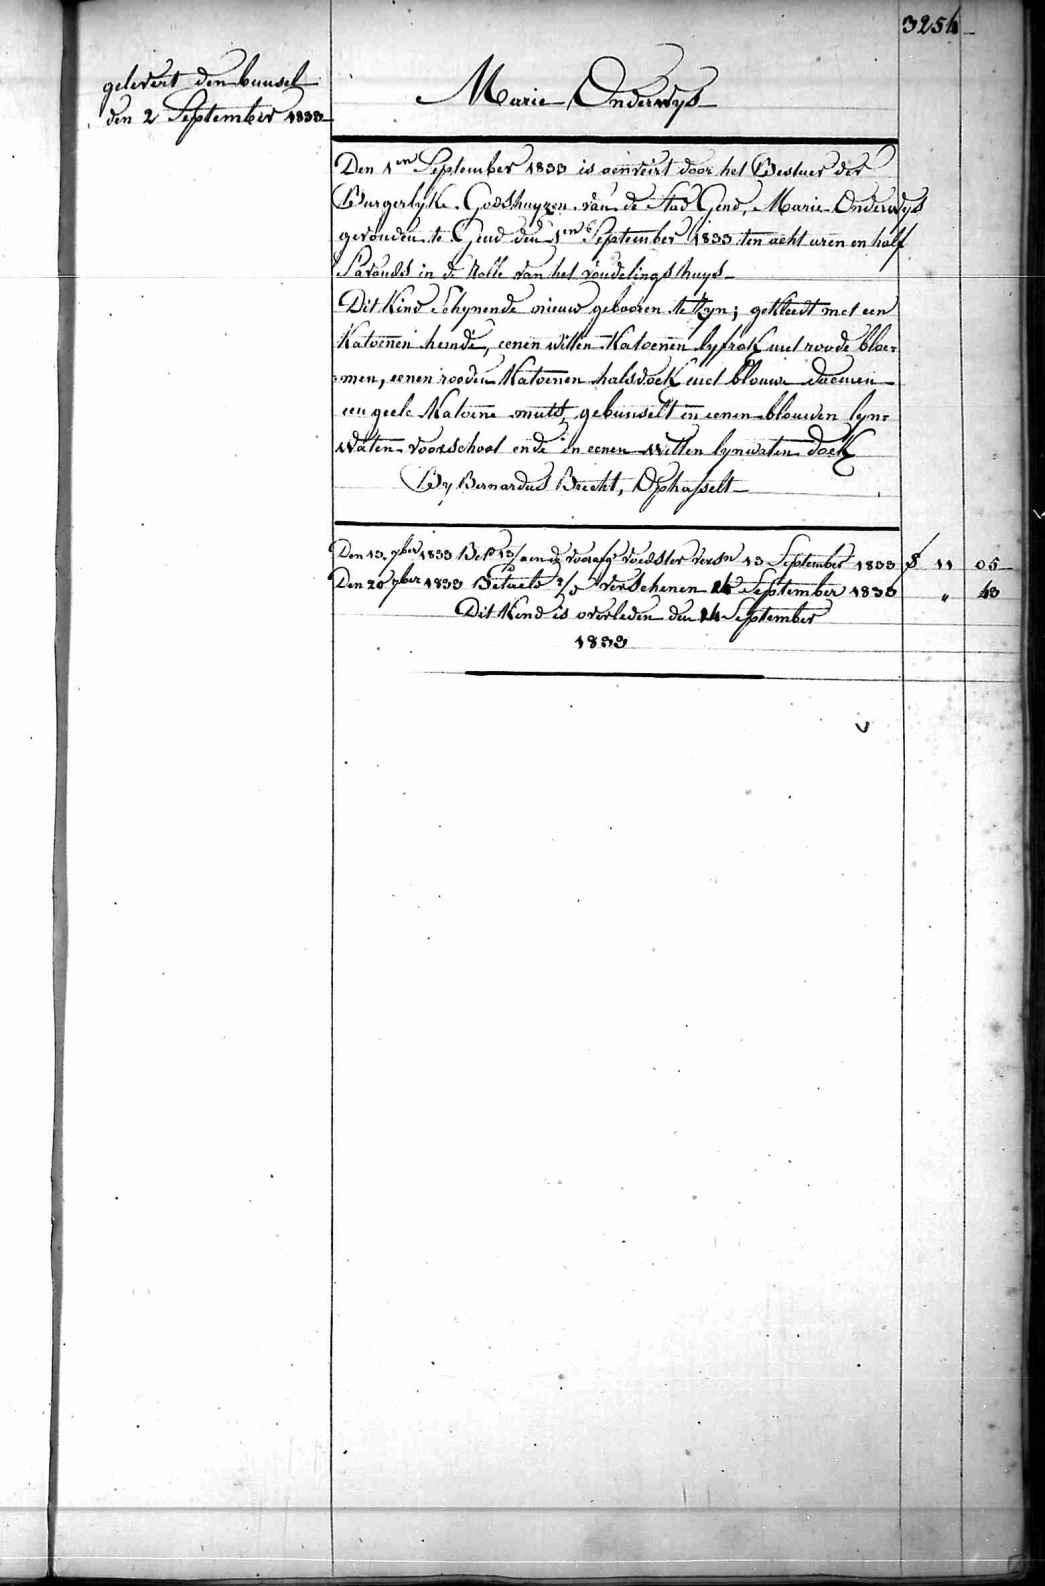 3254
gelevert den bunsel
den 2 September 1833
Marie Onderwys
Den 1en September 1833 is aenveirt door het Bestuer der
Burgerlyke Godshuyzen van de Stad Gend, Marie Onderwys
gevonden te Gend den 1en September 1833 ten acht uren en half
S'avonds in de Rolle van het vondelingshuys
Dit Kind schynende nieuw gebooren te Zyn; gekleedt met een
Katoenen hemde, eenen witten Katoenen lyfrok met roode bloe=
=men, eenen rooden Katoenen halsdoek met blouwe
een geele Katoene muts, gebunselt in eenen blouwen lyn=
waten voorschoot ende in eenen witten lynwaten doek
By Bernardus Brecht, Ophasselt
Den 13 7ber 1833 Bet 13 aen de voedster versn 13 September 1833 f 11 05
Den 20 7ber 1833 Betaeld verschenen 14 September 1833 " 43
Dit Kind is overleden den 14 September
1833